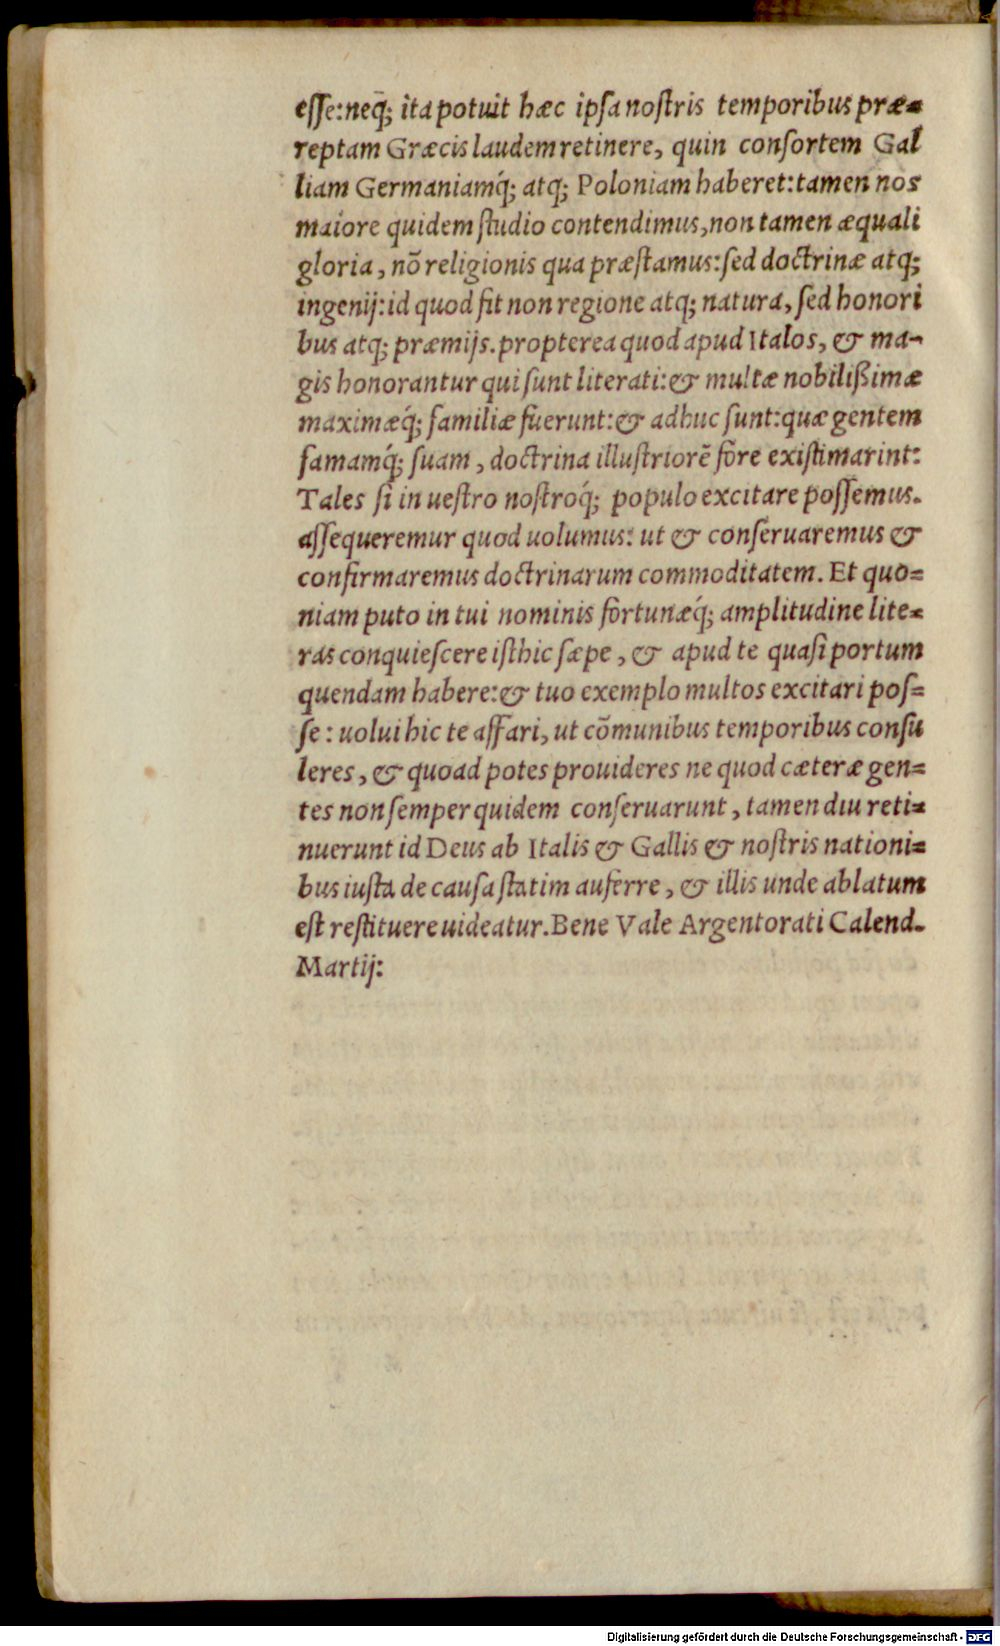 eſſe:neq̃; ita potuit hæc ipſa noſtris temporibus præ⸗
reptam Græcis laudem retinere, quin conſortem Gal
liam Germaniamq́; atq; Poloniam haberet: tamen nos
maiore quidem ſtudio contendimus, non tamen æquali
gloria, nõ religionis qua præſtamus: ſed doctrinæ atq;
ingenij: id quod fit non regione atq; natura, ſed honori
bus atq; præmijs. propterea quod apud Italos, & ma-
gis honorantur qui ſunt literati: & multæ nobilißimæ
maximæq́; familiæ fuerunt: & adhuc ſunt: quæ gentem
famamq́; ſuam, doctrina illuſtriorẽ fore exiſtimarint:
Tales ſi in ueſtro noſtroq́; populo excitare poſſemus.
aſſequeremur quod uolumus: ut & conſeruaremus &
confirmaremus doctrinarum commoditatem. Et quo⸗
niam puto in tui nominis fortunæq́; amplitudine lite⸗
ras conquieſcere iſthic ſæpe, & apud te quaſi portum
quendam habere: & tuo exemplo multos excitari poſ⸗
ſe: uolui hic te affari, ut cõmunibus temporibus conſu
leres, & quoad potes prouideres ne quod cæteræ gen⸗
tes non ſemper quidem conſeruarunt, tamen diu reti⸗
nuerunt id Deus ab Italis & Gallis & noſtris nationi⸗
bus iuſta de cauſa ſtatim auferre, & illis unde ablatum
eſt reſtituere uideatur. Bene Vale Argentorati Calend.
Martij:
Digitalisierung gefördert durch die Deutsche Forschungsgemeinschaft - DFG